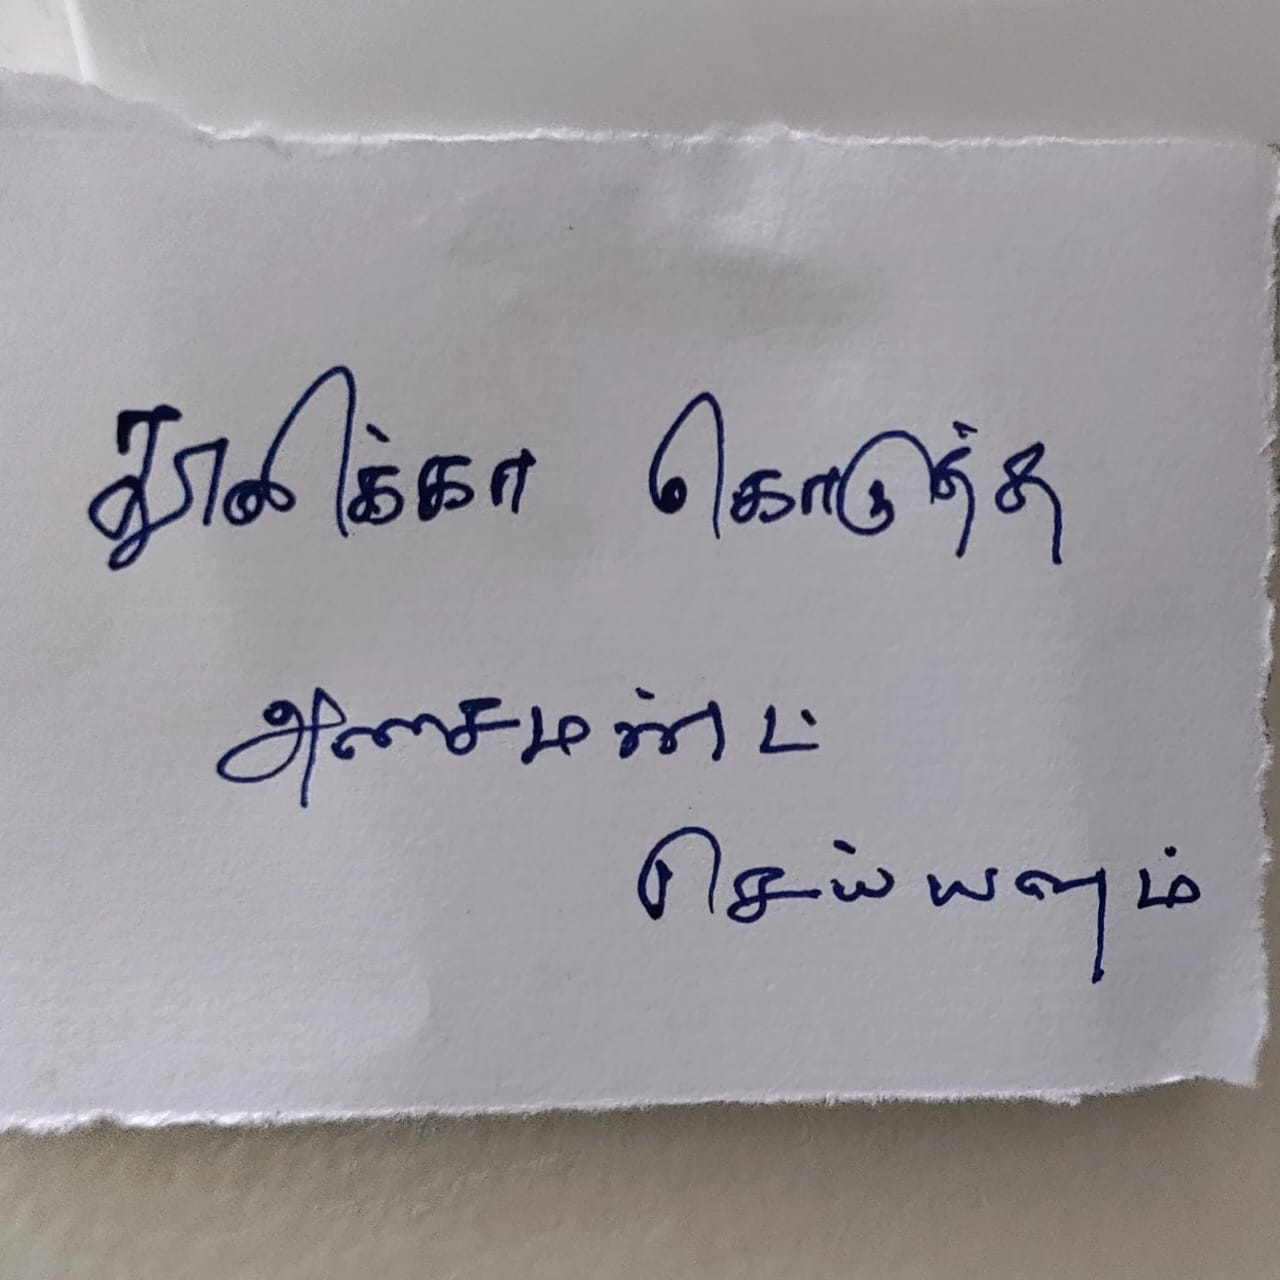 தூலிக்கா கொடுத்த
அசைமண்ட்
செய்யனும்